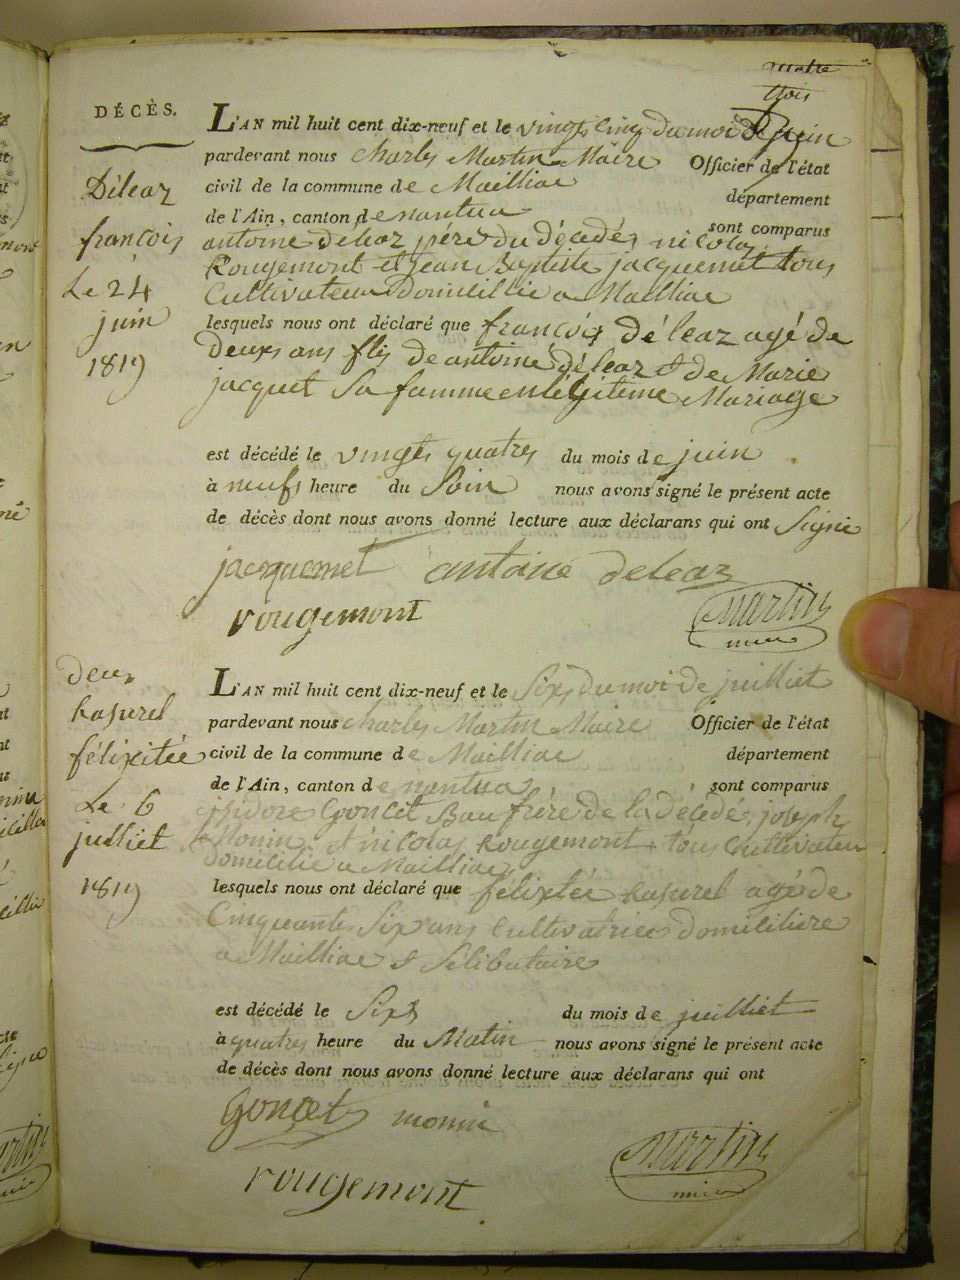 trois
DÉCÈS.
L'AN mil huit cent dix-neuf et le vingts cinq du moi de juin
pardevant nous charles Martin Maire Officier de l'état
civil de la commune de Mailliac département
de l'Ain, canton de nantua sont comparus
antoine déléaz père du décédés nicolas
Rougemont et jean Baptiste jacquemet tous
Cultivateur domicillie a Mailliac
lesquels nous ont déclaré que françois déléaz agé de
deuxs ans fils de antoine déléaz & de Marie
jacquet Sa famme en légitime Mariage
est décédé le vingts quatres du mois de juin
à neufs heure du Soir nous avons signé le présent acte
de décès dont nous avons donné lecture aux déclarans qui ont Signé
Déléaz
françois
Le 24
juin
1819
jacquemet antoine deleaz
rougemont martin
mire
L'AN mil huit cent dix-neuf et le Sixs du moi de juilliet
pardevant nous charles Martin Maire Officier de l'état
civil de la commune de Mailliac département
de l'Ain, canton de nantua sont comparus
isidore Goncet Bau frére de la décédé, joseph
Monin & nicolas Rougemont tous Cultivateur
domicilié a Mailliac
lesquels nous ont déclaré que félixtée Rasurel agé de
Cinquante Six ans Cultivatrice domiciliére
a Mailliac & Sélibataire
est décédé le Sixs du mois de juilliet
à quatres heure du Matin nous avons signé le présent acte
de décès dont nous avons donné lecture aux déclarans qui ont
deux
Rasurel
félixitée
Le 6
juilliet
1819
Goncet monin
rougemont martin
mire